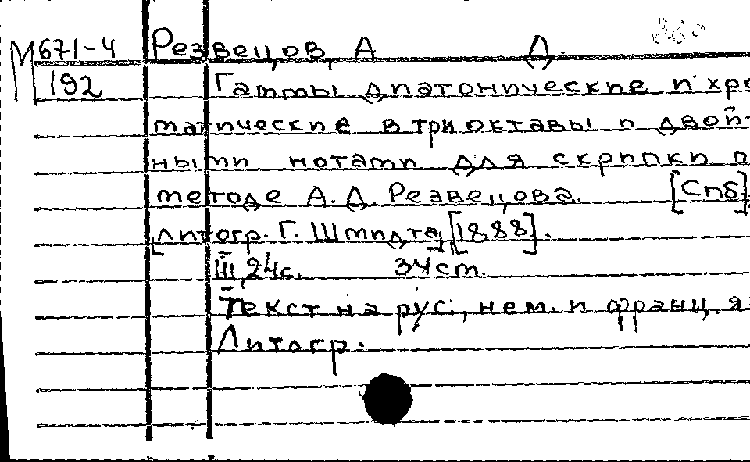 М671-4 Резвецов, А Д.
192 Гаммы диатонические и хро
матические в три октавы и двой-
ными нотами для скрипки п
методе А. Д. Резвецова. [Спб]
[литогр. Г. Шмидта], [1888].
III, 24с. 34см.
Текст на рус., нем. и франц. я
Литогр.